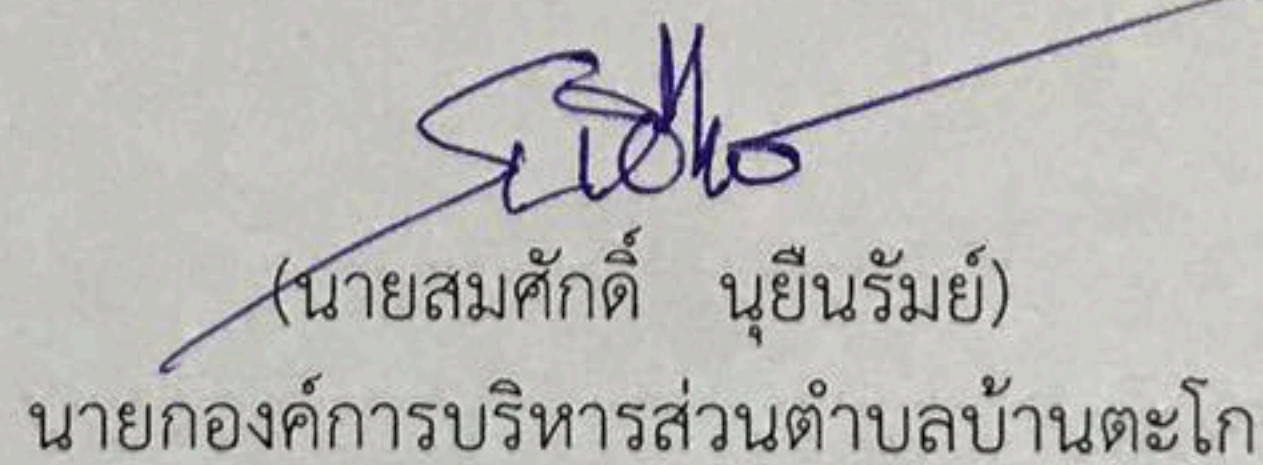 (นายสมศักดิ์ นุยืนรัมย์)
นายกองค์การบริหารส่วนตำบลบ้านตะโก